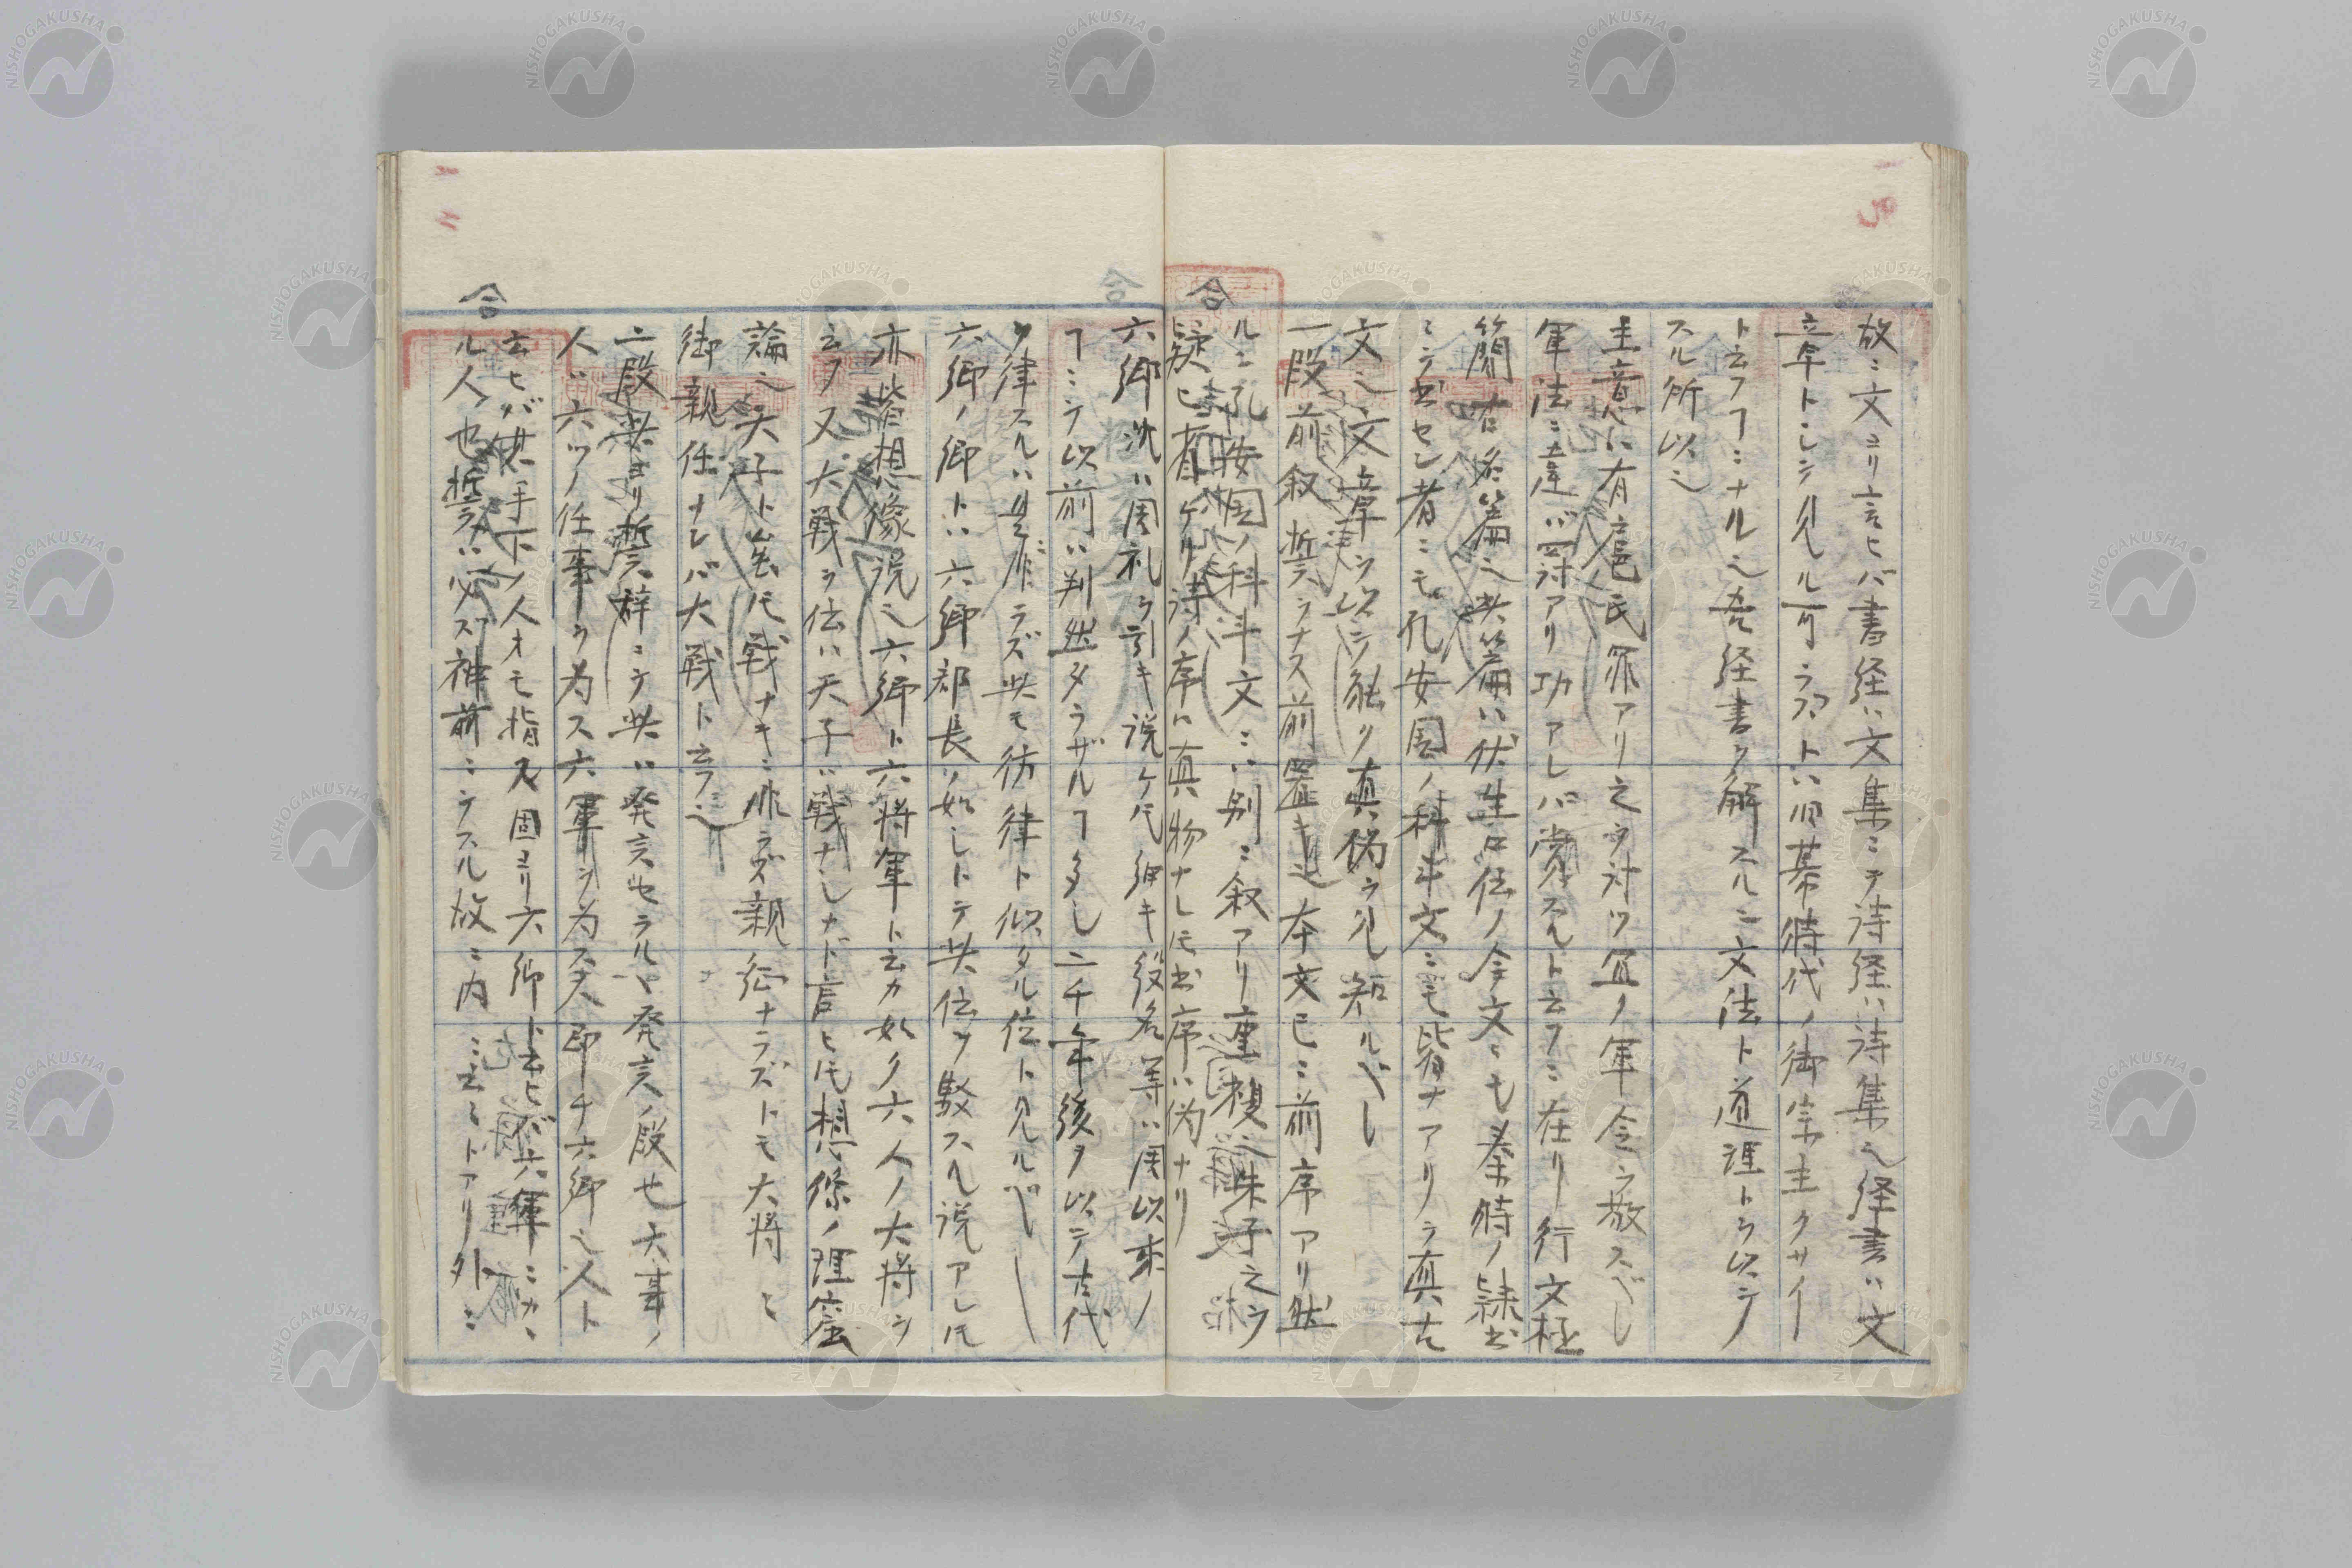 故ニ文ヨリ言ヒバ書経ハ文集ニテ詩経ハ詩集也経書ハ文
章トシシ見ル可ラズトハ旧幕時代ノ御宗主クサイ
ト云フヿニナル也吾経書ヲ解スルニ文法ト道理トヲ以シテ
スル所以也
主意ハ有扈氏罪アリ之ヲ討ツ宜ノ軍令ヲ敬スベし
軍法ニ違バ罸アリ功アレバ賞スルト云フニ在リ行文極
簡古名篇也此篇ハ伏生口伝ノ今文ニも秦時ノ隷書
ニテ書セシ者ニモ孔安国ノ科斗文ニモ皆ナアリテ真古
文也文章ヲ以シテ能ク真偽ヲ見知ルベし
一段前叙誓ヲナス前置キ也本文已ニ前序アリ然
ルニ孔安国ノ科斗文ニハ別ニ叙アリ重複也朱子之ヲ
疑ヒ書ケリ詩ノ序ハ真物ナレ𪜈書序ハ偽ナリ
六卿沈ハ周礼ヲ引キ説ケ𪜈細キ役名等ハ周以来ノ
ヿニシテ以前ハ判然タラザルヿ多し二千年後ヲ以テ古代
ヲ律スルハ是ニ非ラズ此モ彷律ト似タル位ト見ルベし
六卿ノ卿トハ六卿部長ノ如しトテ此伝ヲ駁スル説アレ𪜈
亦皆想像説也六卿ト六将軍ト云カ如ク六人ノ大将ヲ
云フ又大戦ヲ伝ハ天子ハ戦ナシナド言ヒ𪜈想像ノ理窟
論也天子ト虽𪜈戦ナキニ非ラズ親征ナラズトモ大将ニ
御親任ナレバ大戦ト云フ也
二段此ヨリ誓辞ニテ此ハ発言セラル发言ノ段也六事ノ
人ハ六ツノ任事ヲ為ス六軍ヲ為ス人即チ六卿也人ト
云ヒバ其手下ノ人オモ指ス固ヨリ六卿ト云ヒバ六軍ニカヽ
ル人也誓ハ必ズ神前ニテスル故ニ内ニ云々トアリ外ニ
合
合
NISHOGAKUSHA